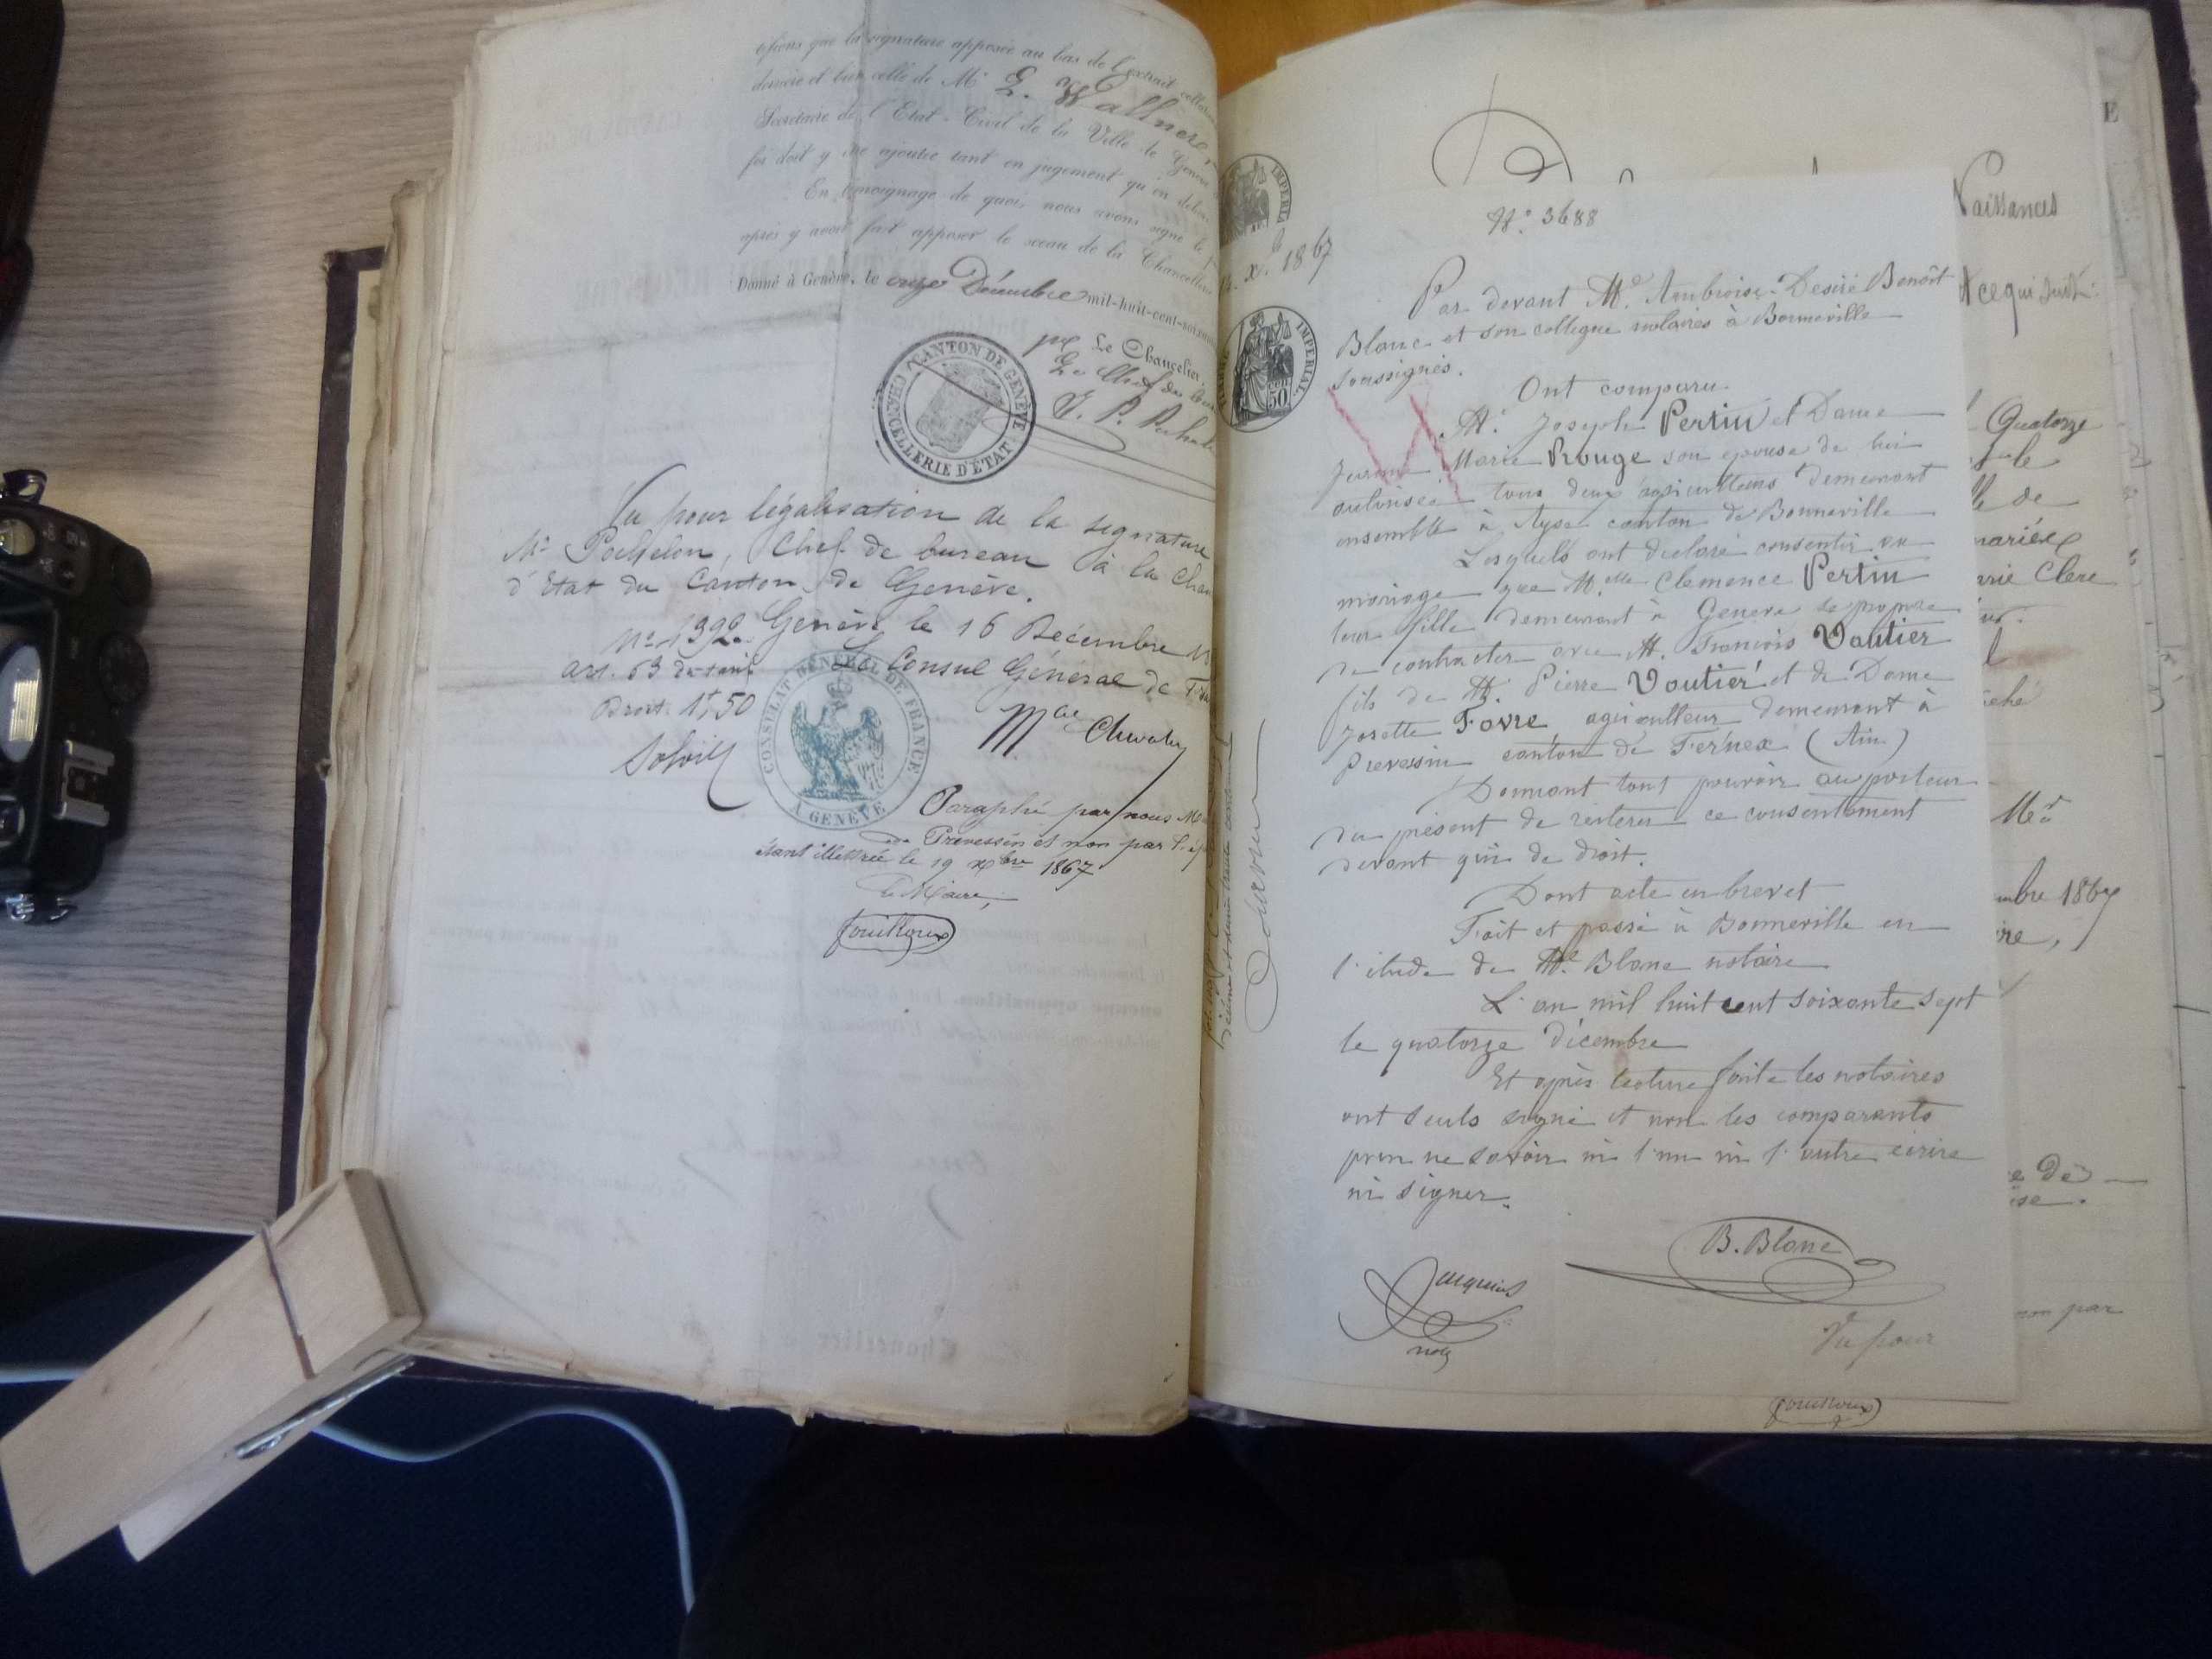 que la signature apposée au bas de l'extrait
et bien celle de Mr
Secrétaire de l'Etat-Civil de la Ville de Genève
foi doit y être ajoutée tant en jugement qu'en
En témoignage de quoi nous avons signé le
après y avoir fait apposer le sceau de la Chancellerie
Donné à Genève, le onze Décembre mil-huit-cent-soixante
Le Chancelier,
CANTON DE GENÈVE
CHANCELLERIE D'ÉTAT
Vu pour légalisation de la signature
Mr Pochelon, Chef de bureau à la
d'Etat du Canton de Genève.
Genève le 16 Décembre
Le Consul Général de
No 1392
art. 63 du tarif
Droit. 1f,50
CONSULAT GENERAL DE FRANCE
A GENÈVE
Paraphé par nous
de Prévessin et non par
étant illettrée le 19 xbre 1867
Le Maire,
Fouilloux
IMPERIAL
1867
IMPERIAL
50
No. 3688
Par devant Me. Ambroise-Désiré Benoît
Blanc et son collègue notaires à Bonneville
soussignés.
Ont comparu
Mr. Joseph Pertin et Dame
Jeanne Marie Rouge son épouse de lui
autorisée tous deux agriculteurs demeurant
ensemble à Ayse canton de Bonneville
Lesquels ont déclaré consentir au
mariage que Melle Clémence Pertin
leur fille demeurant à Genève se propose
de contracter avec M. François Vautier
fils de M. Pierre Voutier et de Dame
Josette Fovre agriculteur demeurant à
Prevessin canton de Fernex (Ain)
Donnant tout pouvoir au porteur
du présent de réitérer ce consentement
devant qui de droit.
Dont acte en brevet
Fait et passé à Bonneville en
l'étude de Me Blanc notaire
L'an mil huit cent soixante sept
le quatorze décembre
Et après lecture faite les notaires
ont seuls signé et non les comparants
pour ne savoir ni l'un ni l'autre écrire
ni signer.
B. Blanc
Vu pour
Fouilloux
E
Naissances
ce qui suit:
Quatorze
le
de
mariée
Clere
Mr
1867
De
non par